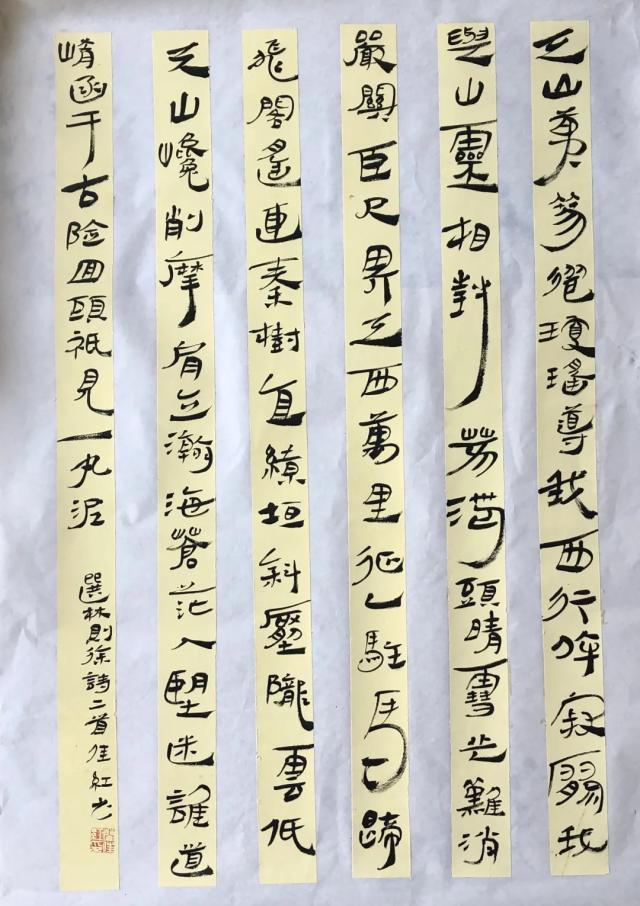 天山萬笏聳瓊瑤導我西行伴寂寥我
與山靈相對笑滿頭晴雪共難消
嚴關百尺界天西萬里征人駐馬蹄
飛閣遙連秦樹直繚垣斜壓隴雲低
天山巉削摩肩立瀚海蒼茫入望迷誰道
崤函千古险回頭祇見一丸泥
選林則徐詩二首佳紅书